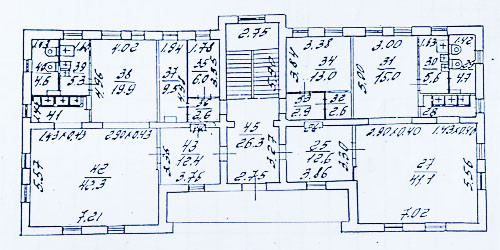 2.75
1.43
4.02
1.94
1.78
3.38
3.00
1.43
1.42
38
19.9
37
35
6.0
3.84
34
13.0
5.00
31
15.0
30
5.6
4.7
4.6
39
5.3
2.9
32
2.6
2.6
41
1.43×0.43
2.90×0.43
45
26.3
3.27
2.75
43
12.4
3.75
25
12.6
3.86
3.30
2.90×0.40
1.43×0.40
5.57
42
40.3
7.21
27
41.1
5.56
7.02